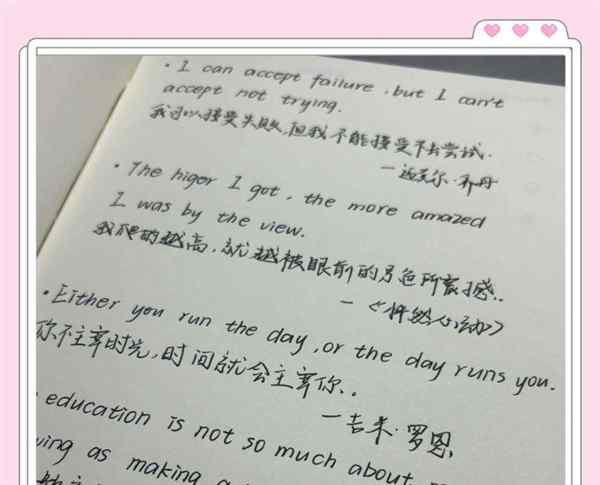 · I can accept failure, but I can't
accept not trying.
我可以接受失败,但我不能接受不去尝试.
— 迈克尔·乔丹
· The higer I got, the more amazed
I was by the view.
我爬的越高,就越被眼前的景色所震撼..
— 《怦然心动》
· Either you run the day, or the day runs you.
你不主宰时光,时间就会主宰你..
— 吉米·罗恩
education is not so much about
ing as making a